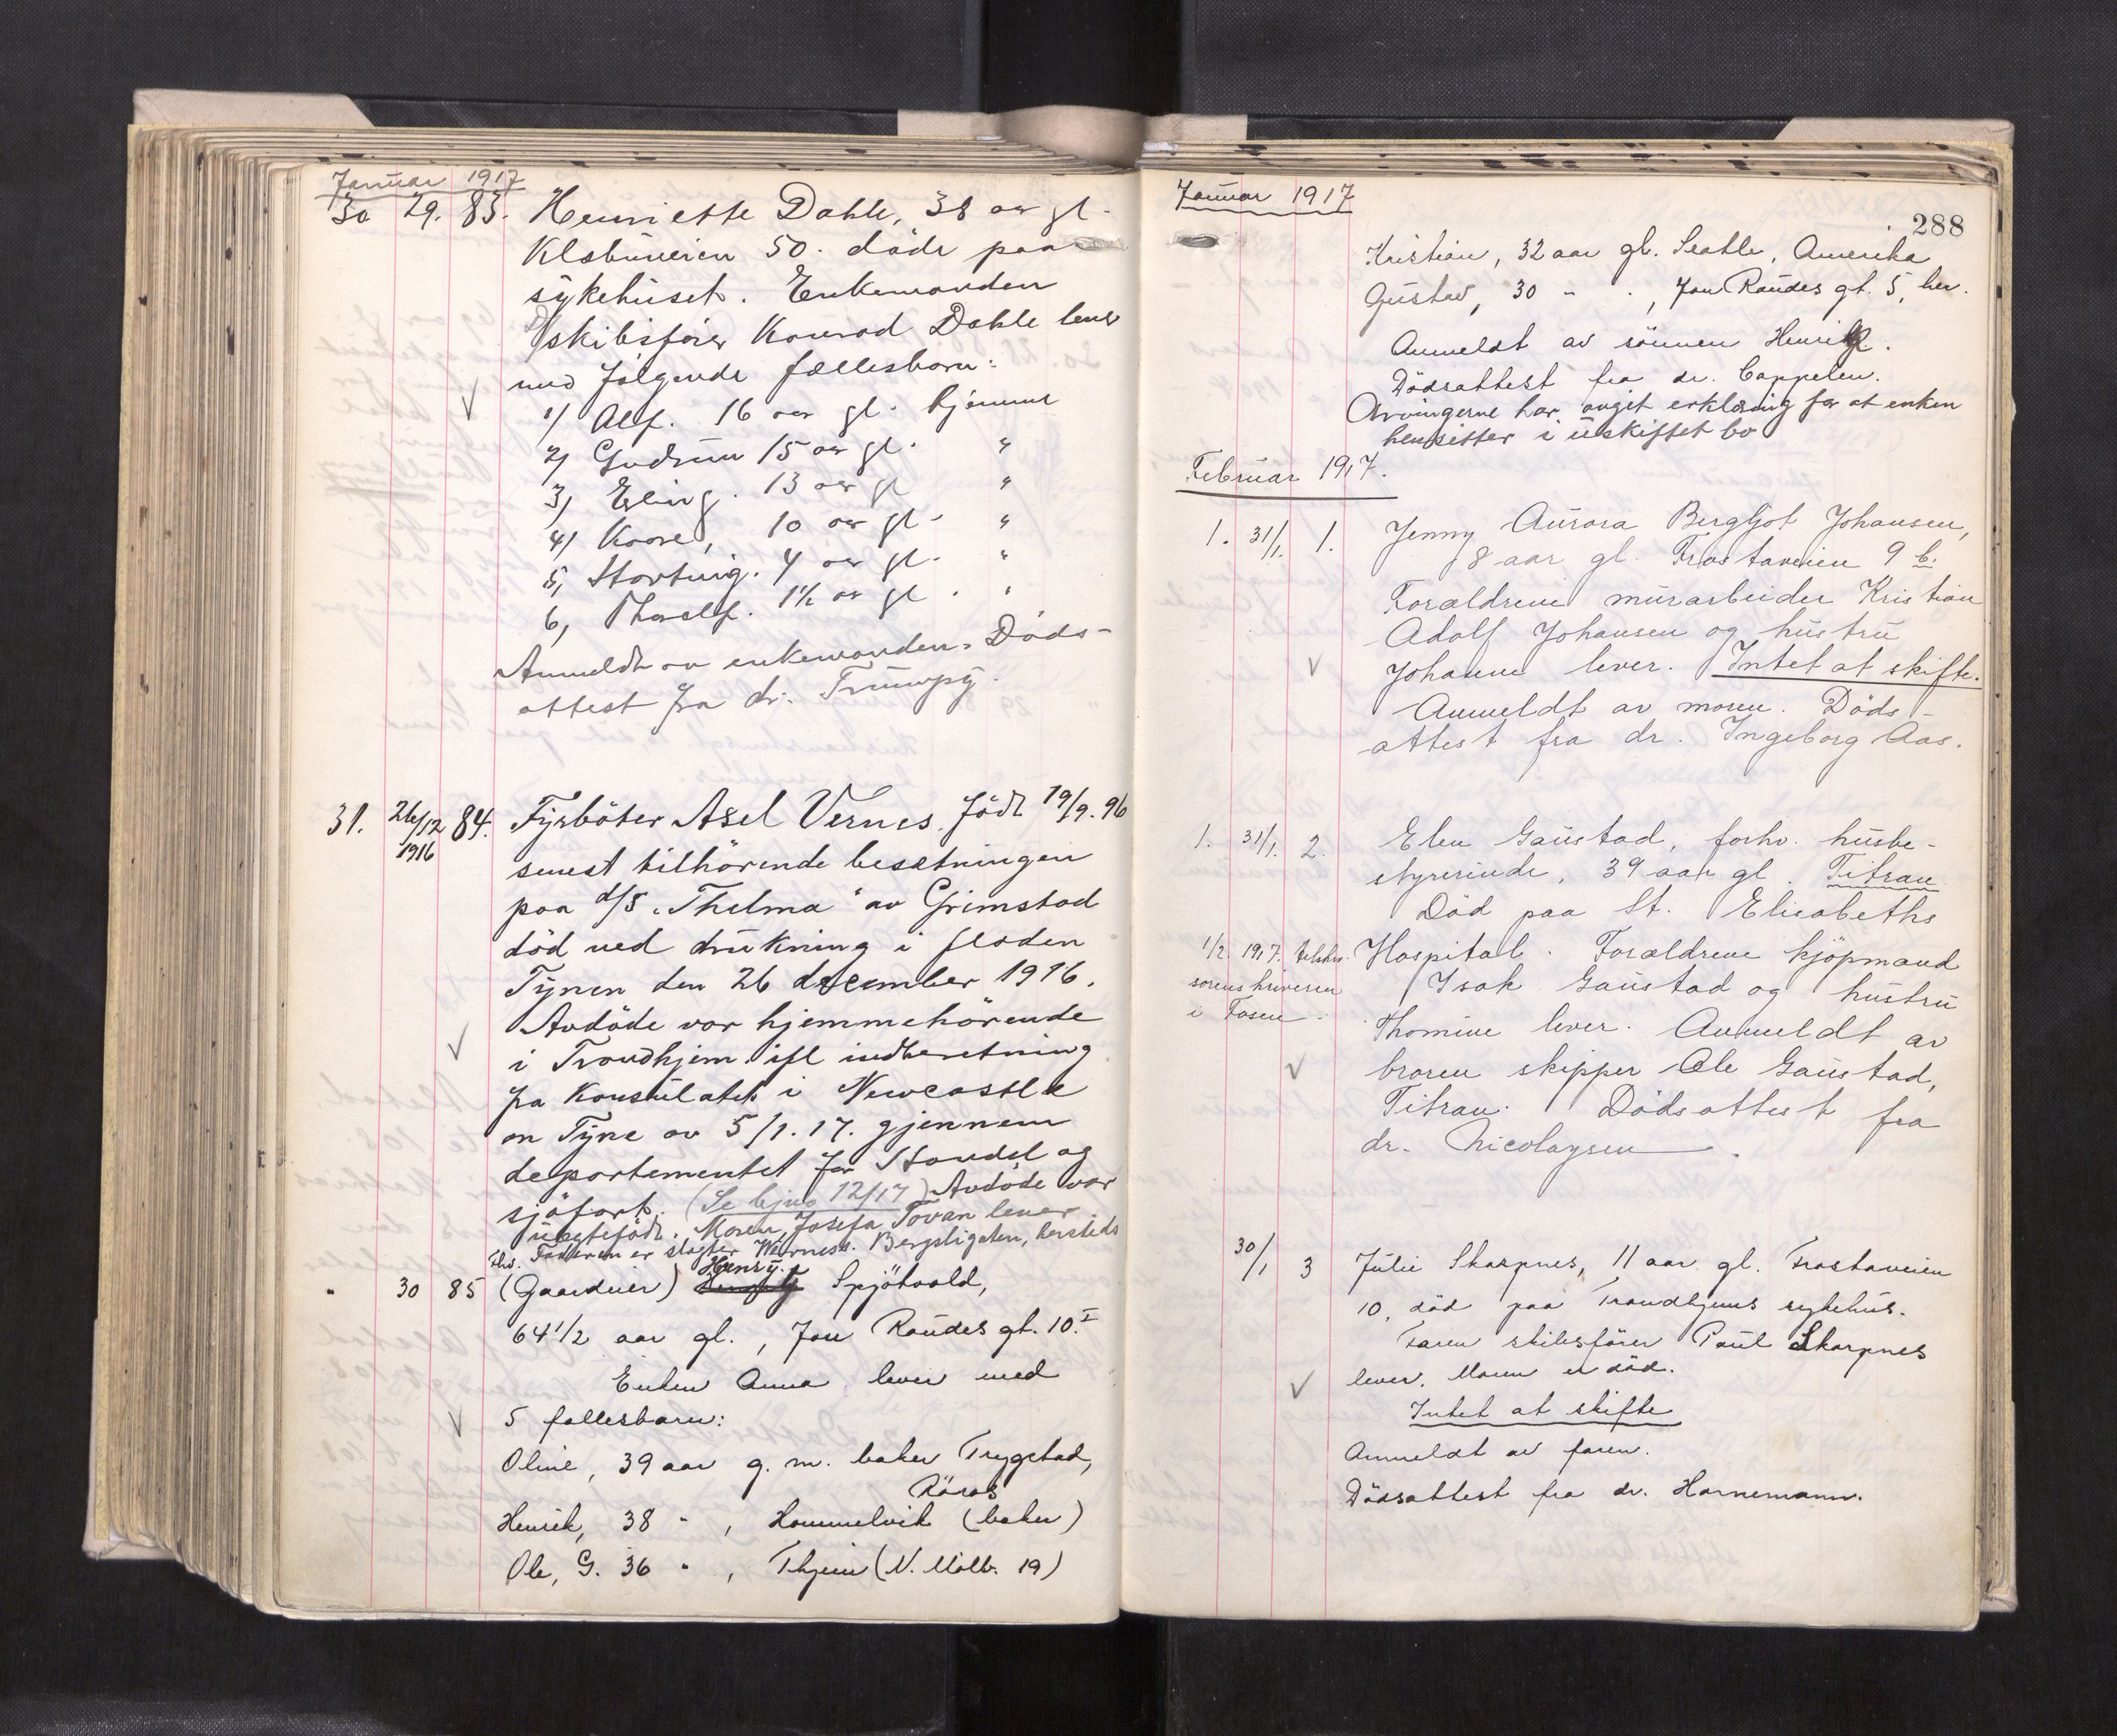 Januar 1917
30 29. 83. Henriette Dahle, 38 aar gl.
Klæbuveien 50. döde paa
sykehuset. Enkemanden
skibsförer Konrad Dahle lever
med fölgende fællesbarn:
1/ Alf. 16 aar gl. hjemme
2/ Gudrun 15 aar gl. "
3/ Erling. 13 aar gl "
4/ Kaare, 10 aar gl. "
5, 4 aar gl. "
6, Thoralf. 1½ aar gl. "
Anmeldt av enkemanden. Döds-
attest fra dr. Trumpy.
31. 26/12 1916 84. Fyrböter Axel Vernes. födt 19/9. 96
senest tilhörende besætningen
paa d/s "Thelma" av Grimstad
död ved drukning i floden
Tynen den 26 december 1916.
Avdöde var hjemmehörende
i Trondhjem ifl indberetning
fra Konsulatet i Newcastle
on Tyne av 5/1. 17. gjennem
departementet for Handel og
sjöfart. (Se bjno 12/17) Avdöde var
uegtefödt. Moren, Josefa Tovan lever
Thv. Faderen er slagter Werness. Bergsligaten, hersteds
" 30 85 (Gaardeier) Henry. Spjötvold,
64 1/2 aar gl., Jon Raudes gt. 10.I
Enken Anna lever med
5 fellesbarn:
Oline, 39 aar g. m. baker Trygstad,
Röros
Henrik, 38 " , Hommelvik (baker)
Ole, G. 36 " , Thjem (N. Mölb. 19)
Januar 1917
288
Kristian, 32 aar gl. Seatle, Amerika
Gustav, 30 " . , Jon Raudes gt. 5, her.
Anmeldt av sönnen Henrik.
Dödsattest fra dr. Cappelen.
Arvingerne har avgit erklæring for at enken
hensitter i uskiftet bo
Februar 1917.
1. 31/1. 1. Jenny Aurora Bergljot Johansen,
8 aar gl. Frostaveien 9 b.
Forældrene murarbeider Kristian
Adolf Johansen og hustru
Johanne lever. Intet at skifte.
Anmeldt av moren. Döds-
attest fra dr. Ingeborg Aas.
1. 31/1. 2. Elen Gaustad, forhv. husbe-
styrerinde, 39 aar gl. Titran
Död paa St. Elisabeths
1/2. 1917. tilskr. Hospital. Forældrene kjöpmand
sorenskriveren Isak Gaustad og hustru
i Fosen. Thomine lever. Anmeldt av
broren skipper Ole Gaustad,
Titran. Dödsattest fra
dr. Nicolaysen.
30/1 3 Julie Skarpnes, 11 aar gl. Frostaveien
10, död paa Trondhjems sykehus.
Faren skibsförer Paul Skarpnes
lever. Moren er död.
Intet at skifte
Anmeldt av faren.
Dödsattest fra dr. Hornemann.